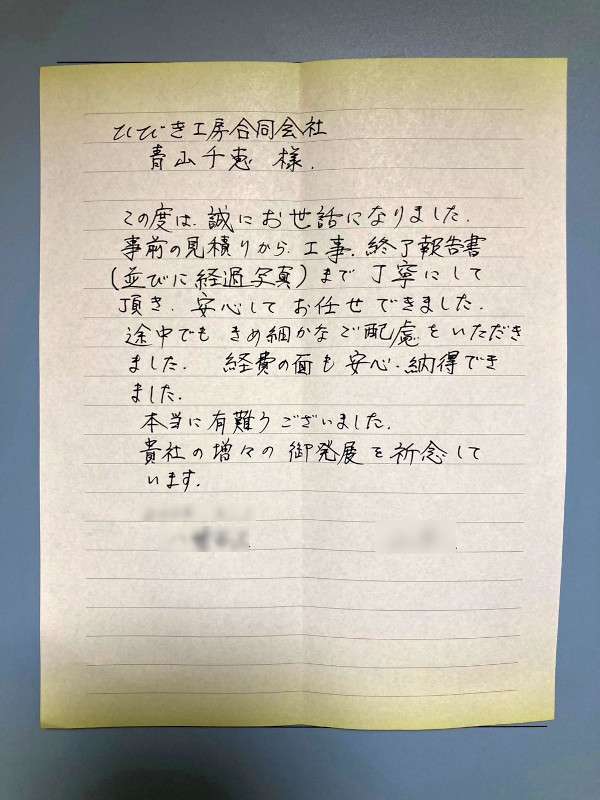 ひびき工房合同会社
青山千恵 様.
この度は、誠にお世話になりました.
事前の見積りから、工事、終了報告書
(並びに経過写真)まで丁寧にして
頂き、安心してお任せできました.
途中でもきめ細かなご配慮をいただき
ました. 経費の面も安心、納得でき
ました.
本当に有難うございました.
貴社の増々の御発展を祈念して
います.